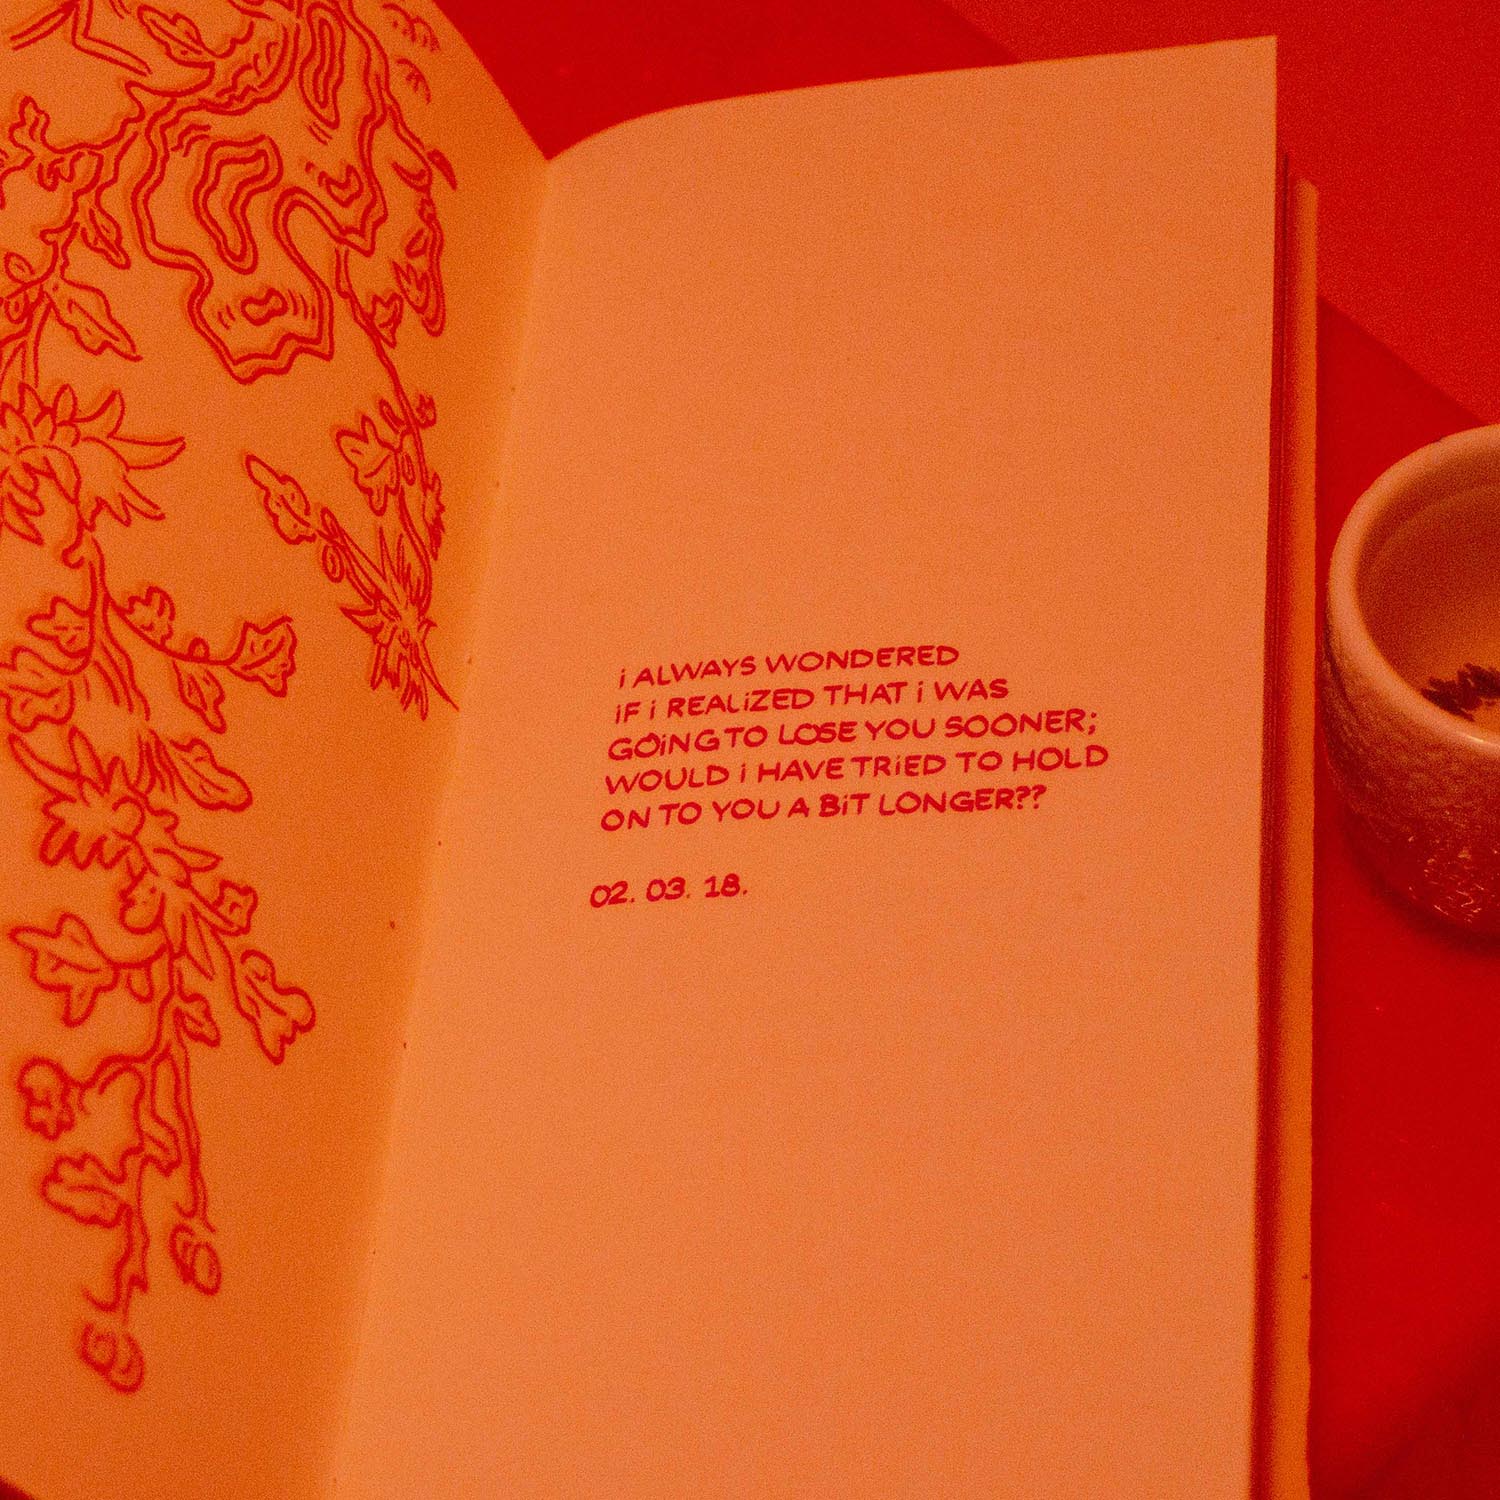 i ALWAYS WONDERED
iF i REALiZED THAT i WAS
GOiNG TO LOSE YOU SOONER;
WOULD i HAVE TRiED TO HOLD
ON TO YOU A BiT LONGER??
02. 03. 18.